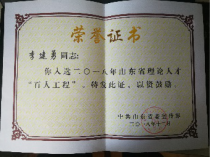 荣誉证书
李建勇同志：
你入选二〇一八年山东省理论人才
“百人工程”，特发此证，以资鼓励。
中共山东省委宣传部
二〇一八年十二月